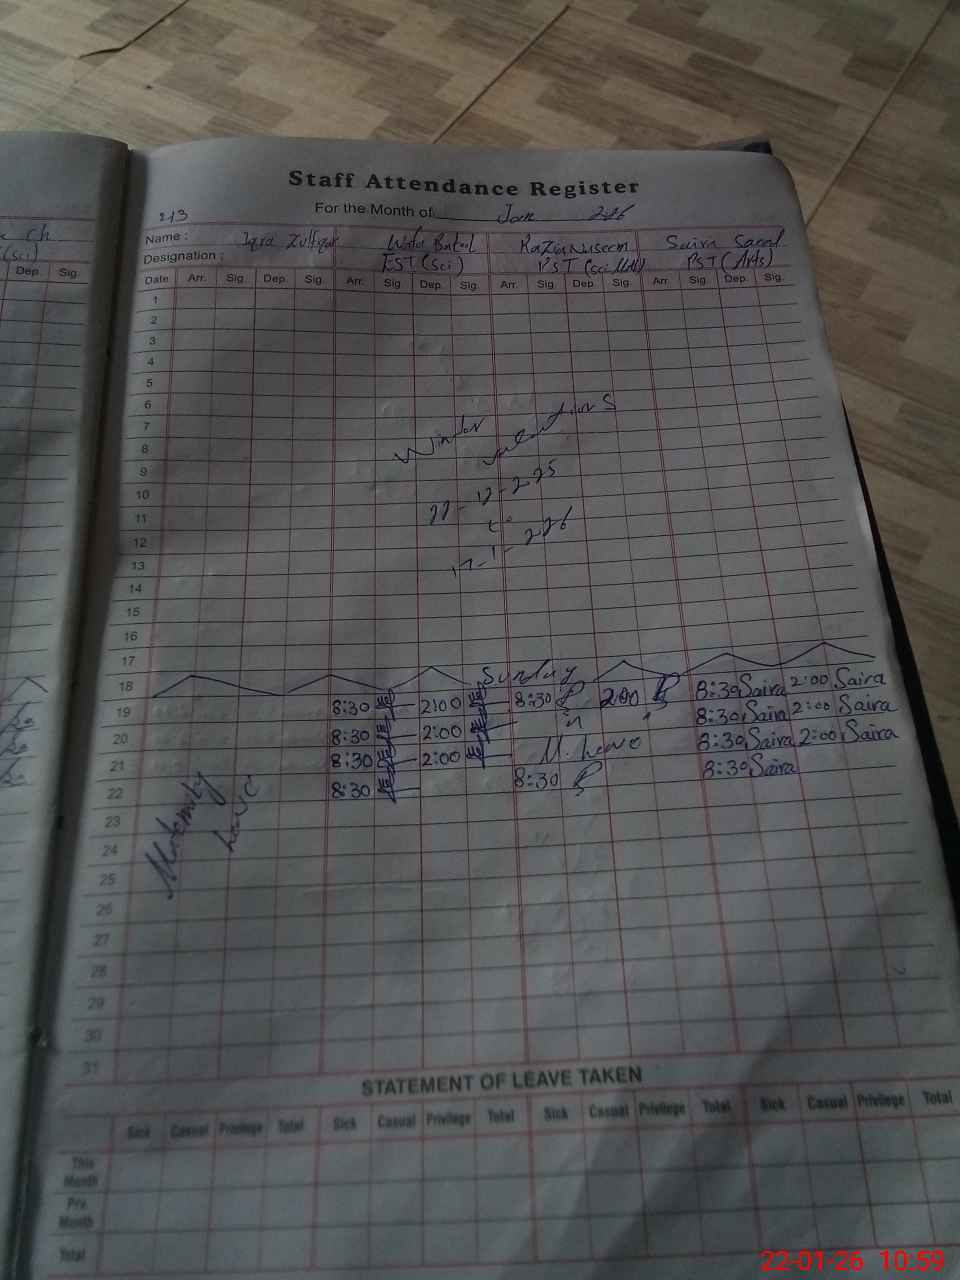 Staff Attendance Register
For the Month of Jan 2026
213
Name : Iqra Zulfqar Wafa Batool Razia Naseem Saira Saeed
Designation : EST (Sci) PST (Sci Math) PST (Arts)
ch
(Sci)
Dep. Sig.
Date Arr. Sig. Dep. Sig. Arr. Sig. Dep. Sig. Arr. Sig. Dep. Sig. Arr. Sig. Dep. Sig.
1
2
3
4
5
6
7
8
9
10
11
12
13
14
15
16
17
18
19
20
21
22
23
24
25
26
27
28
29
30
31
Winter
22-12-225
to
17-1-226
Sunday
8:30 2:00 8:30 2:00 8:30 Saira 2:00 Saira
8:30 2:00 8:30 Saira 2:00 Saira
8:30 2:00 8:30 Saira 2:00 Saira
8:30 8:30 8:30 Saira
Maternity
Leave
STATEMENT OF LEAVE TAKEN
Sick Casual Privilege Total Sick Casual Privilege Total Sick Casual Privilege Total Sick Casual Privilege Total
This Month
Pre Month
Total
22-01-26 10:59